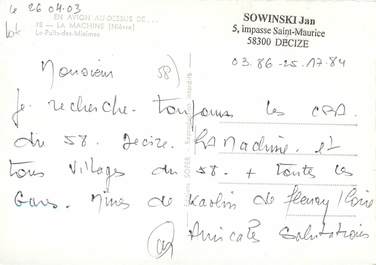 le 26 04.03
EN AVION AU-DESSUS DE...
18 - LA MACHINE (Nièvre)
Le Puits-des-Minimes
SOWINSKI Jan
5, impasse Saint-Maurice
58300 DECIZE
03.86-25.17.84
Monsieur 58)
Je recherche toujours les CPA
du 58. Decize. LA Machine. et
tous villages du 58. + toutes les
Gares. Mines de Kaolin de fleury/Loire
Amicales Salutations